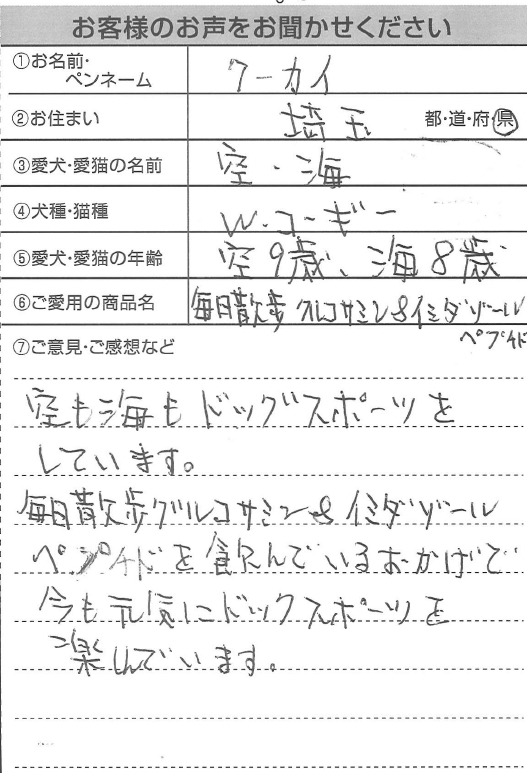 お客様のお声をお聞かせください
①お名前・ペンネーム クーカイ
②お住まい 埼玉 都・道・府・県
③愛犬・愛猫の名前 空・海
④犬種・猫種 W.コーギー
⑤愛犬・愛猫の年齢 空9歳、海8歳
⑥ご愛用の商品名 毎日散歩グルコサミン&イミダゾール
ペプチド
⑦ご意見・ご感想など
空も海もドッグスポーツを
しています。
毎日散歩グルコサミン&イミダゾール
ペプチドを飲んでいるおかげで
今も元気にドックスポーツを
楽しんでいます。